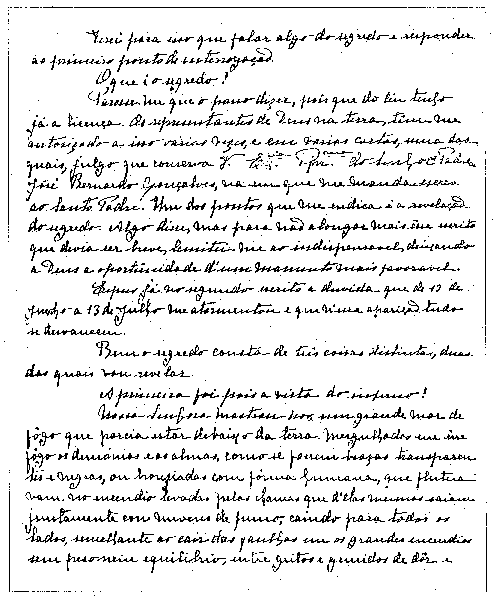 Terei para isso que falar algo do segredo e responder
ao primeiro ponto de interrogação.
O que é o segredo?
Parece-me que o posso dizer, pois que do Ceu tenho
já a licença. Os representantes de Deus na terra, teem-me
autorizado a isso varias vezes, e em varias cartas, uma das
quais, julgo que conserva V. do Senhor Padre
José Bernardo Gonçalves, na em que me manda escrever
ao Santo Padre. Um dos pontos que me indica é a revelação
do segredo. Algo disse, mas para não alongar mais esse escrito
que devia ser breve, limitei-me ao indispensavel, deixando
a Deus a oportunidade d'um momento mais favoravel.
Expus já no segundo escrito a duvida que de 13 de
Junho a 13 de Julho me atormentou e que n'essa aparição tudo
se desvaneceu.
Bem o segredo consta de tres coisas distintas, duas
das quais vou revelar.
A primeira foi pois a vista do inferno!
Nossa Senhora mostrou-nos um grande mar de
fôgo que parcia estar debaixo da terra. Mergulhados em êsse
fôgo os demónios e as almas, como se fossem brazas transparen-
tes e negras, ou bronziadas com fórma humana, que flutua-
vam no incendio levadas pelas chamas que d'elas mesmas saiam
juntamente com nuvens de fumo, caindo para todos os
lados, semelhante ao cair das faulhas em os grandes incendios
sem peso nem equilibrio, entre gritos e gemidos de dôr e